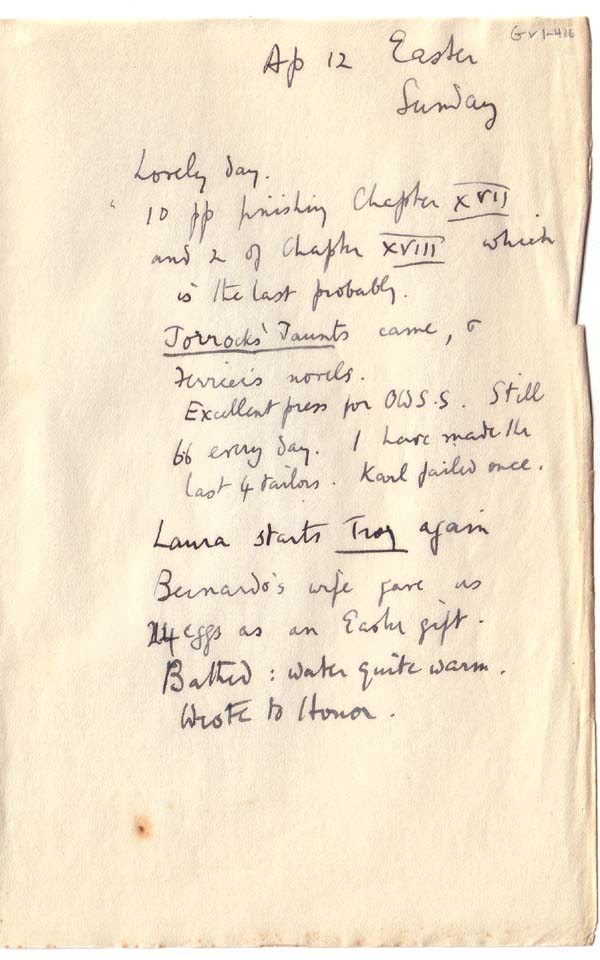 GV1-416
Ap 12 Easter
Sunday
Lovely day.
10 pp finishing Chapter XVII
and 2 of Chapter XVIII which
is the last probably.
Jorrocks' Jaunts came, &
Ferrier's novels.
Excellent press for OWS.S. Still
66 every day. I have made the
last 4 tailors. Karl failed once.
Laura starts Troy again
Bernardo's wife gave us
24 eggs as an Easter gift.
Bathed : water quite warm.
Wrote to Honor.